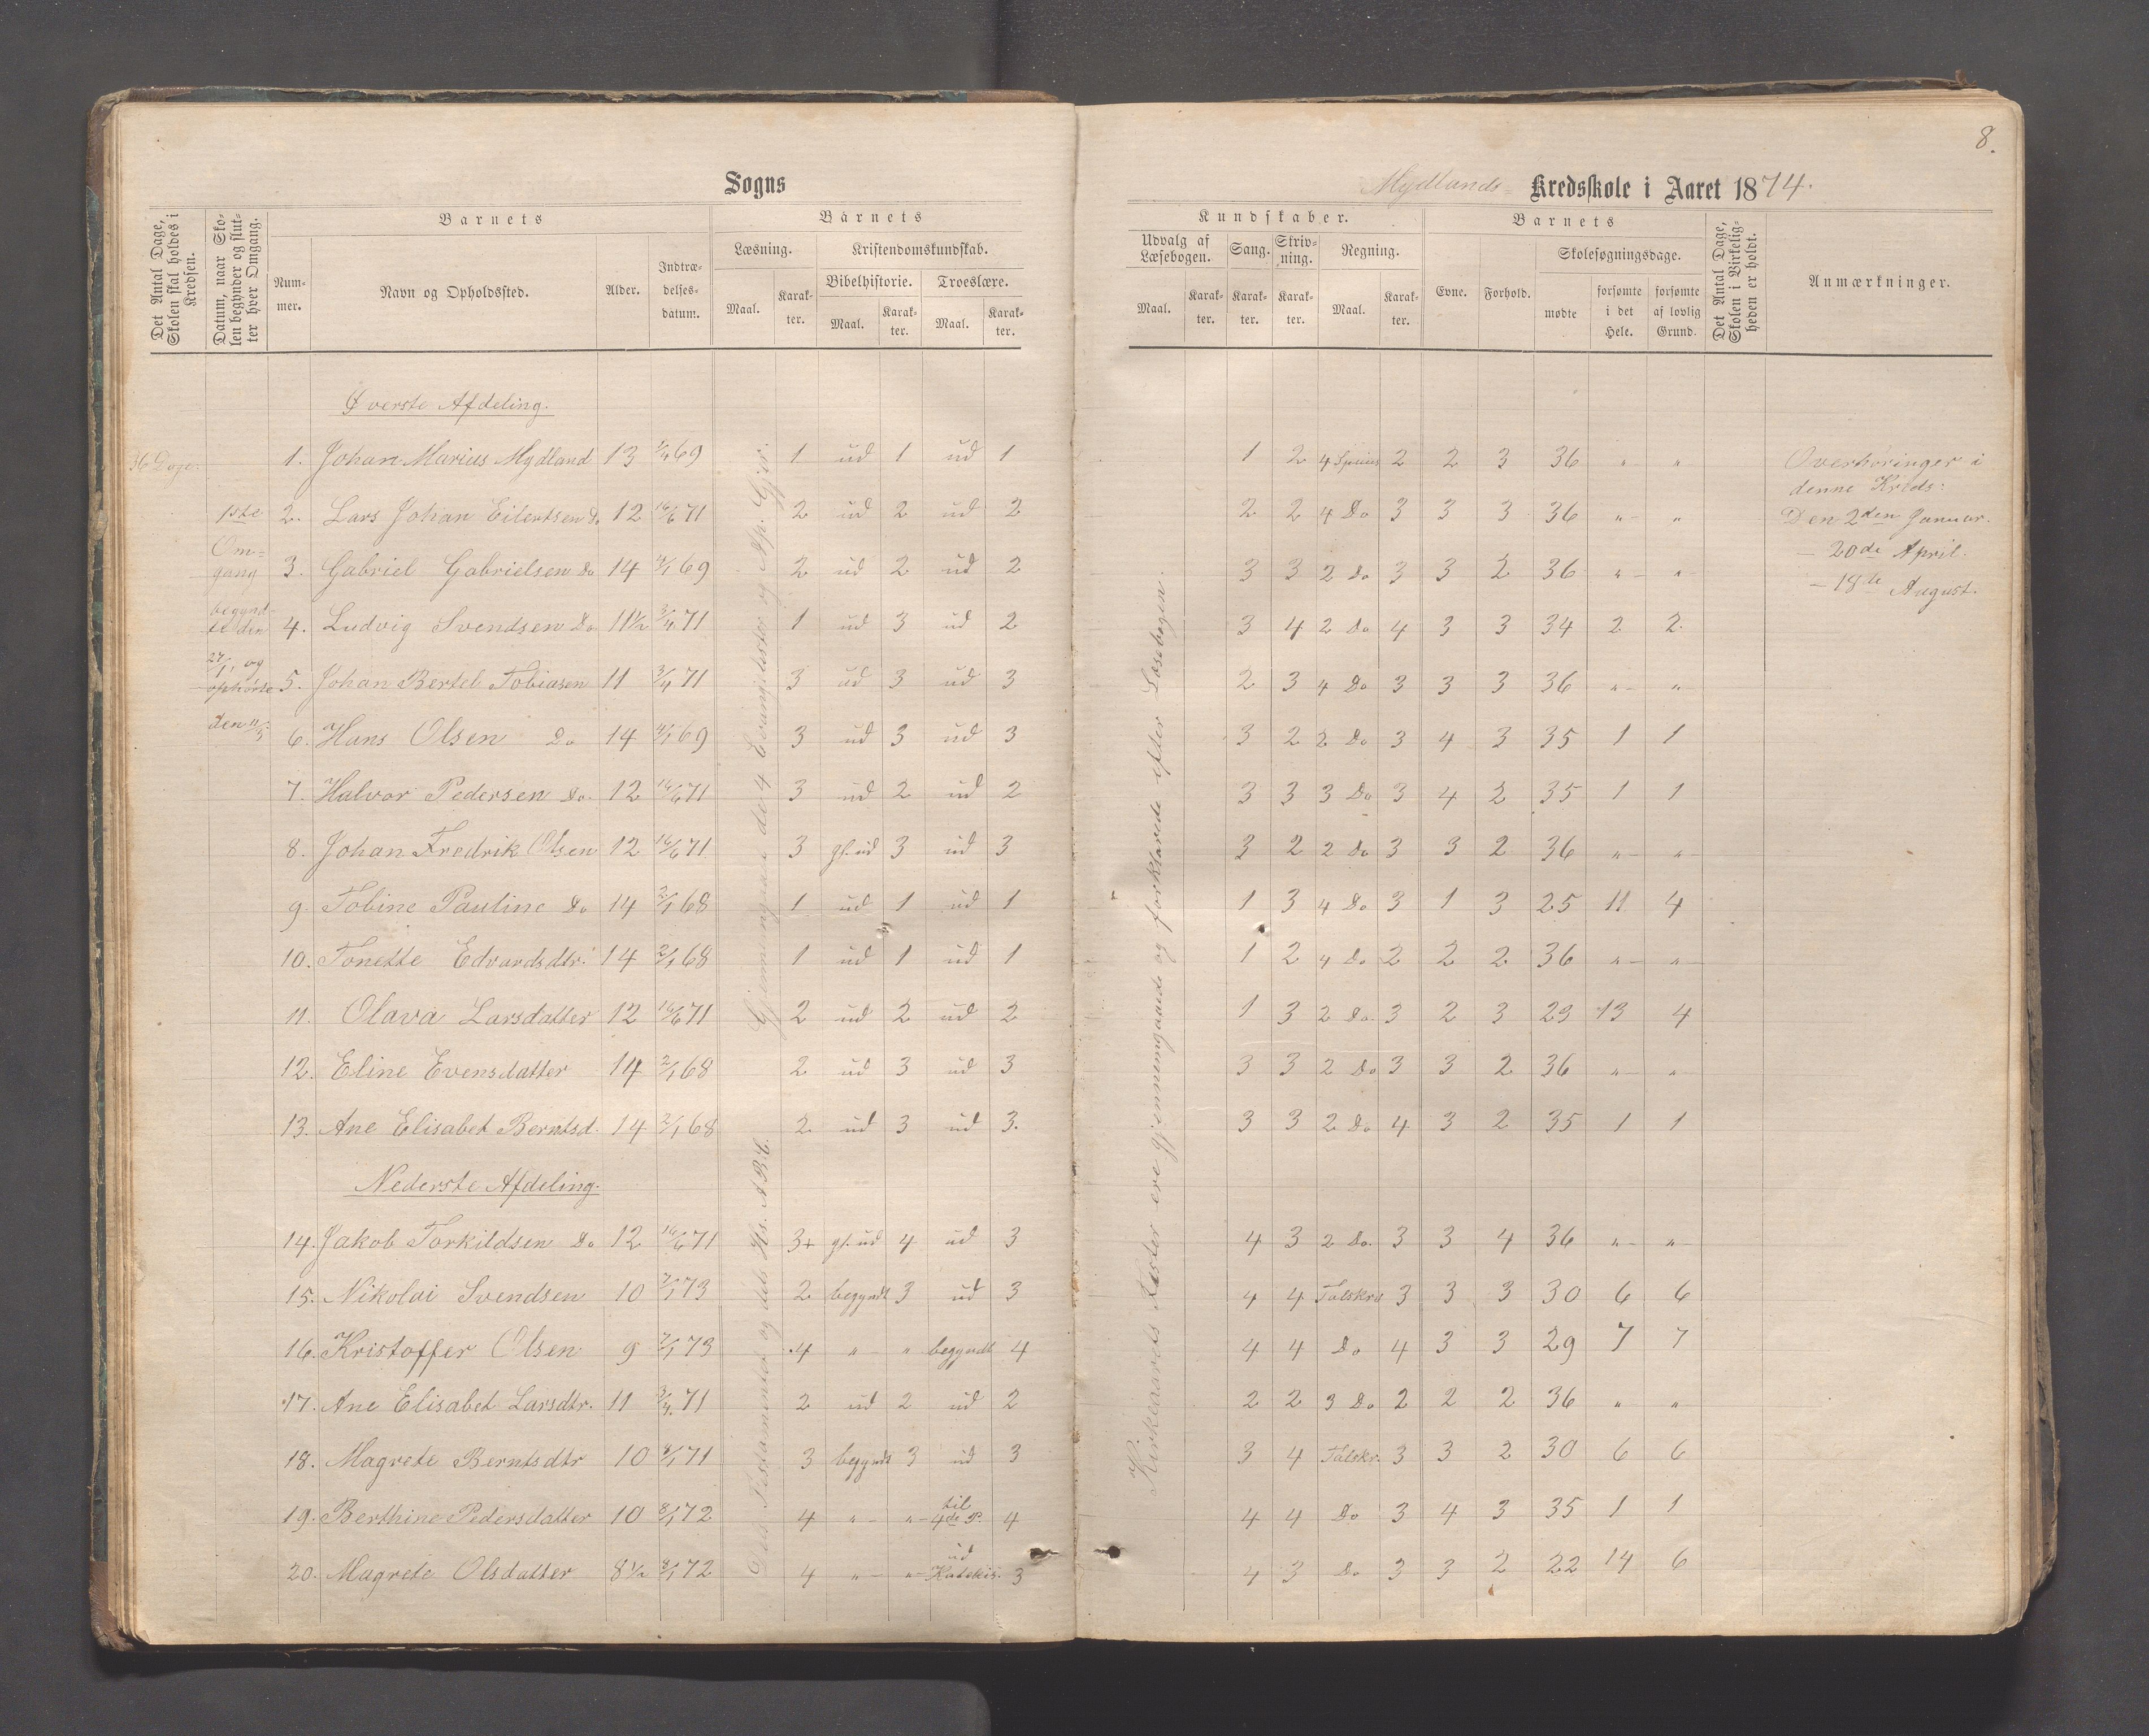 8.
Sogns
Mydlands Kredsskole i Aaret 1874.
Det Antal Dage, Skolen skal holdes i Kredsen.
Datum, naar Skolen begynder og slutter hver Omgang.
Barnets
Nummer.
Navn og Opholdssted.
Alder.
Indtrædelsesdatum.
Barnets
Læsning.
Maal.
Karakter.
Kristendomskundskab.
Bibelhistorie.
Maal.
Karakter.
Troeslære.
Maal.
Karakter.
Kundskaber.
Udvalg af Læsebogen.
Maal.
Karakter.
Sang.
Karakter.
Skrivning.
Karakter.
Regning.
Maal.
Karakter.
Barnets
Evne.
Forhold.
Skolesøgningsdage.
mødte
forsømte i det Hele.
forsømte af lovlig Grund.
Det Antal Dage, Skolen i Virkeligheden er holdt.
Anmærkninger.
36 Dage:
1ste
Om=
gang
begynd-
te den
27/1, og
ophørte
den 11/3
Øverste Afdeling.
1. Johan Marius Mydland 13 1/4 69 1 ud 1 ud 1 1 2 4 Species 2 2 3 36 " "
2. Lars Johan Eilertsen Do 12 16/6 71 2 ud 2 ud 2 2 2 4 Do 3 3 3 36 " "
3. Gabriel Gabrielsen Do 14 4/1 69 2 ud 2 ud 2 3 3 2 Do 3 3 2 36 " "
4. Ludvig Svendsen Do 11½ 3/4 71 1 ud 3 ud 2 3 4 2 Do 4 3 3 34 2 2
5. Johan Bertel Tobiasen 11 3/4 71 3 ud 3 ud 3 2 3 4 Do 3 3 3 36 " "
6. Hans Olsen Do 14 4/1 69 3 ud 3 ud 3 3 2 2 Do 3 4 3 35 1 1
7. Halvor Pedersen Do. 12 16/6 71 3 ud 2 ud 2 3 3 3 Do 3 4 2 35 1 1
8. Johan Fredrik Olsen 12 16/6 71 3 gl. ud 3 ud 3 3 2 2 Do 3 3 2 36 " "
9. Tobine Pauline Do 14 2/1 68 1 ud 1 ud 1 1 3 4 Do 3 1 3 25 11 4
10. Tonette Edvardsdtr. 14 2/1 68 1 ud 1 ud 1 1 2 4 Do 2 2 2 36 " "
11. Olava Larsdatter 12 16/6 71 2 ud 2 ud 2 1 3 2 Do. 3 2 3 23 13 4
12. Eline Evensdatter 14 2/1 68 2 ud 3 ud 3 3 3 2 Do 3 3 2 36 " "
13. Ane Elisabet Berntsd. 14 2/1 68 2 ud 3 ud 3. 3 3 2 Do 4 3 2 35 1 1
Nederste Afdeling.
14. Jakob Torkildsen Do 12 16/6 71 3+ gl. ud 4 ud 3 4 3 2 Do. 3 3 4 36 " "
15. Nikolai Svendsen 10 7/1 73 2 begyndt 3 ud 3 4 4 Talskr 3 3 3 30 6 6
16. Kristoffer Olsen 9 7/1 73 4 " " begyndt 4 4 4 Do 4 3 3 29 7 7
17. Ane Elisabet Larsdtr. 11 3/4 71 2 ud 2 ud 2 2 2 3 Do 2 2 2 36 " "
18. Magrete Berntsdtr 10 4/1 71 3 begyndt 3 ud 3 3 4 Talskr. 3 3 2 30 6 6
19. Berthine Pedersdatter 10 8/1 72 4 " " til 4de P. 4 4 4 Do 3 4 3 35 1 1
20. Magrete Olsdatter 8½ 8/1 72 4 " " ud Katekis. 3 4 3 Do 3 3 2 22 14 6
Gjennemgaaet de 4 Evangelister og Ap. Gjer.
Dels Testamentet og dels Hs. ABC.
Kirkeaarets Fester ere gjennemgaaede og forklarede efter Læsebogen.
Overhøringer i
denne Kreds:
Den 2den Januar.
— 20de April.
— 18de August.